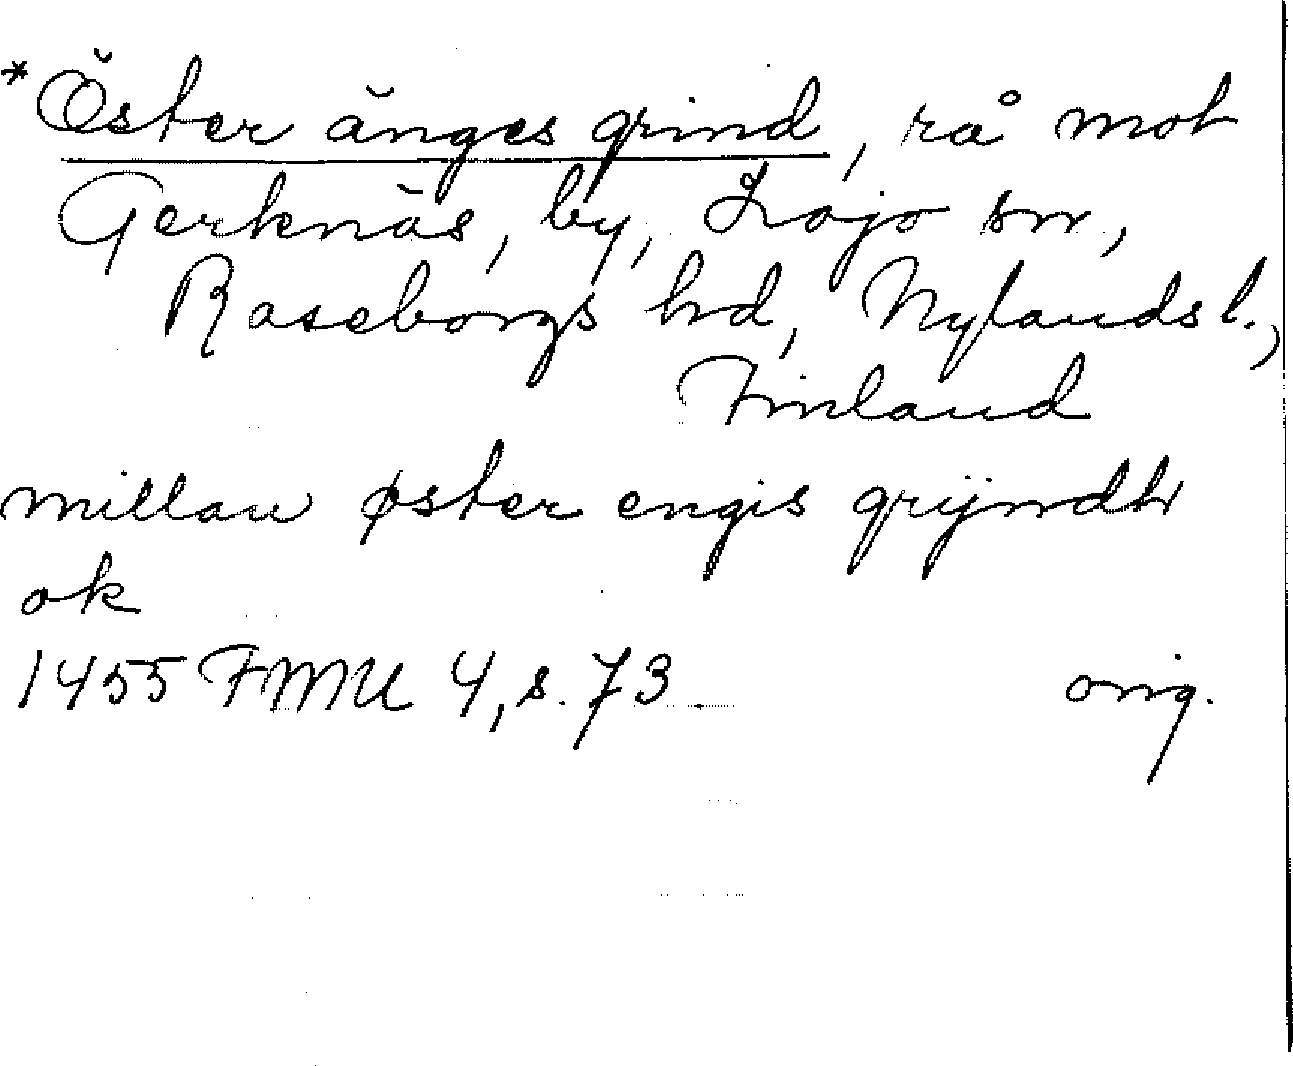 *Öster änges grind, rå mot
Gerknäs, by, Lojo sn,
Raseborgs hd, Nylands l.,
Finland
millan øster engis grijndh
ok
1455 FMU 4, s. 73 orig.